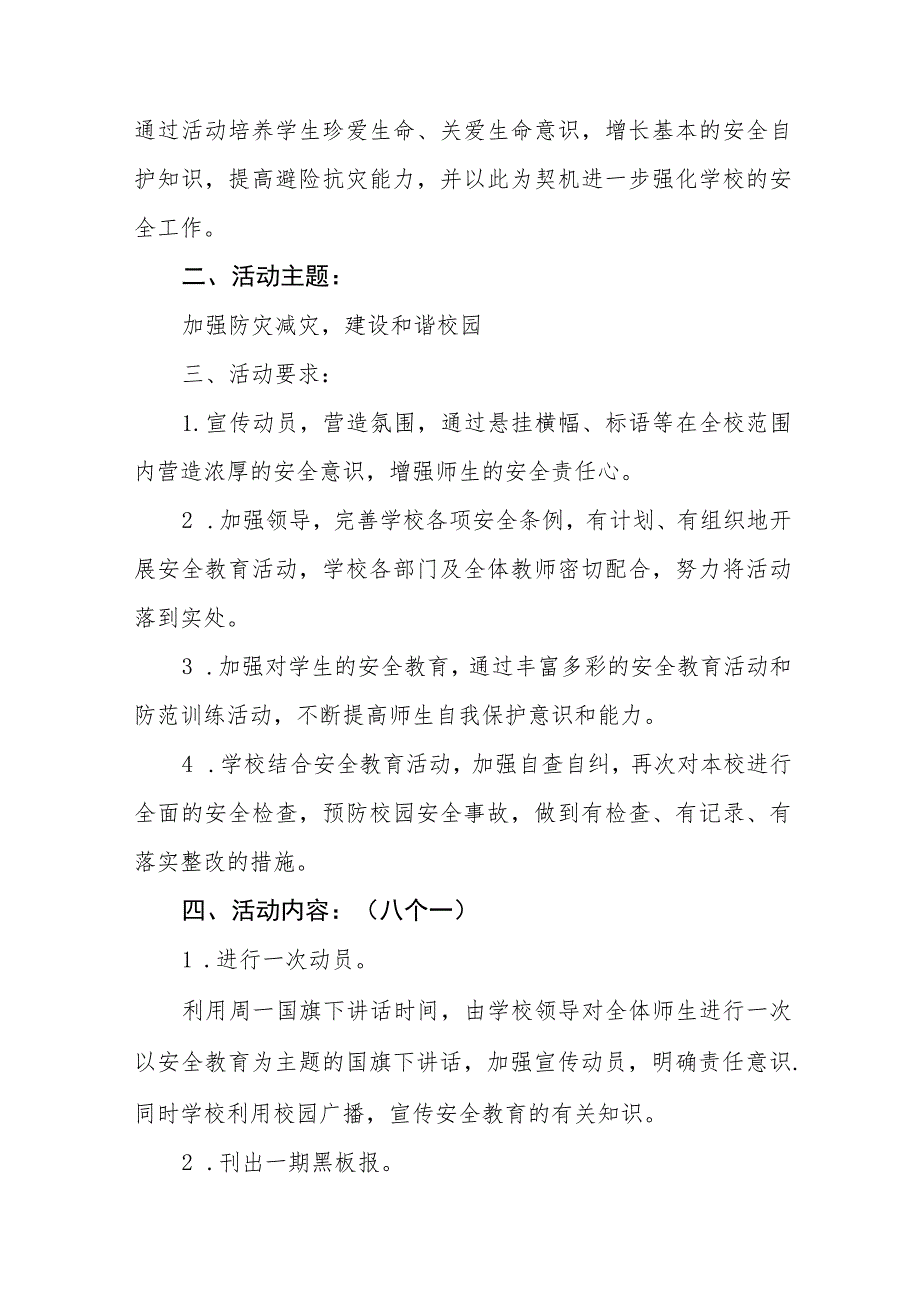 通过活动培养学生珍爱生命、关爱生命意识，增长基本的安全自
护知识，提高避险抗灾能力，并以此为契机进一步强化学校的安
全工作。
二、活动主题：
加强防灾减灾，建设和谐校园
三、活动要求：
1.宣传动员，营造氛围，通过悬挂横幅、标语等在全校范围
内营造浓厚的安全意识，增强师生的安全责任心。
2 .加强领导，完善学校各项安全条例，有计划、有组织地开
展安全教育活动，学校各部门及全体教师密切配合，努力将活动
落到实处。
3 .加强对学生的安全教育，通过丰富多彩的安全教育活动和
防范训练活动，不断提高师生自我保护意识和能力。
4 .学校结合安全教育活动，加强自查自纠，再次对本校进行
全面的安全检查，预防校园安全事故，做到有检查、有记录、有
落实整改的措施。
四、活动内容：（八个一）
1 .进行一次动员。
利用周一国旗下讲话时间，由学校领导对全体师生进行一次
以安全教育为主题的国旗下讲话，加强宣传动员，明确责任意识.
同时学校利用校园广播，宣传安全教育的有关知识。
2 .刊出一期黑板报。